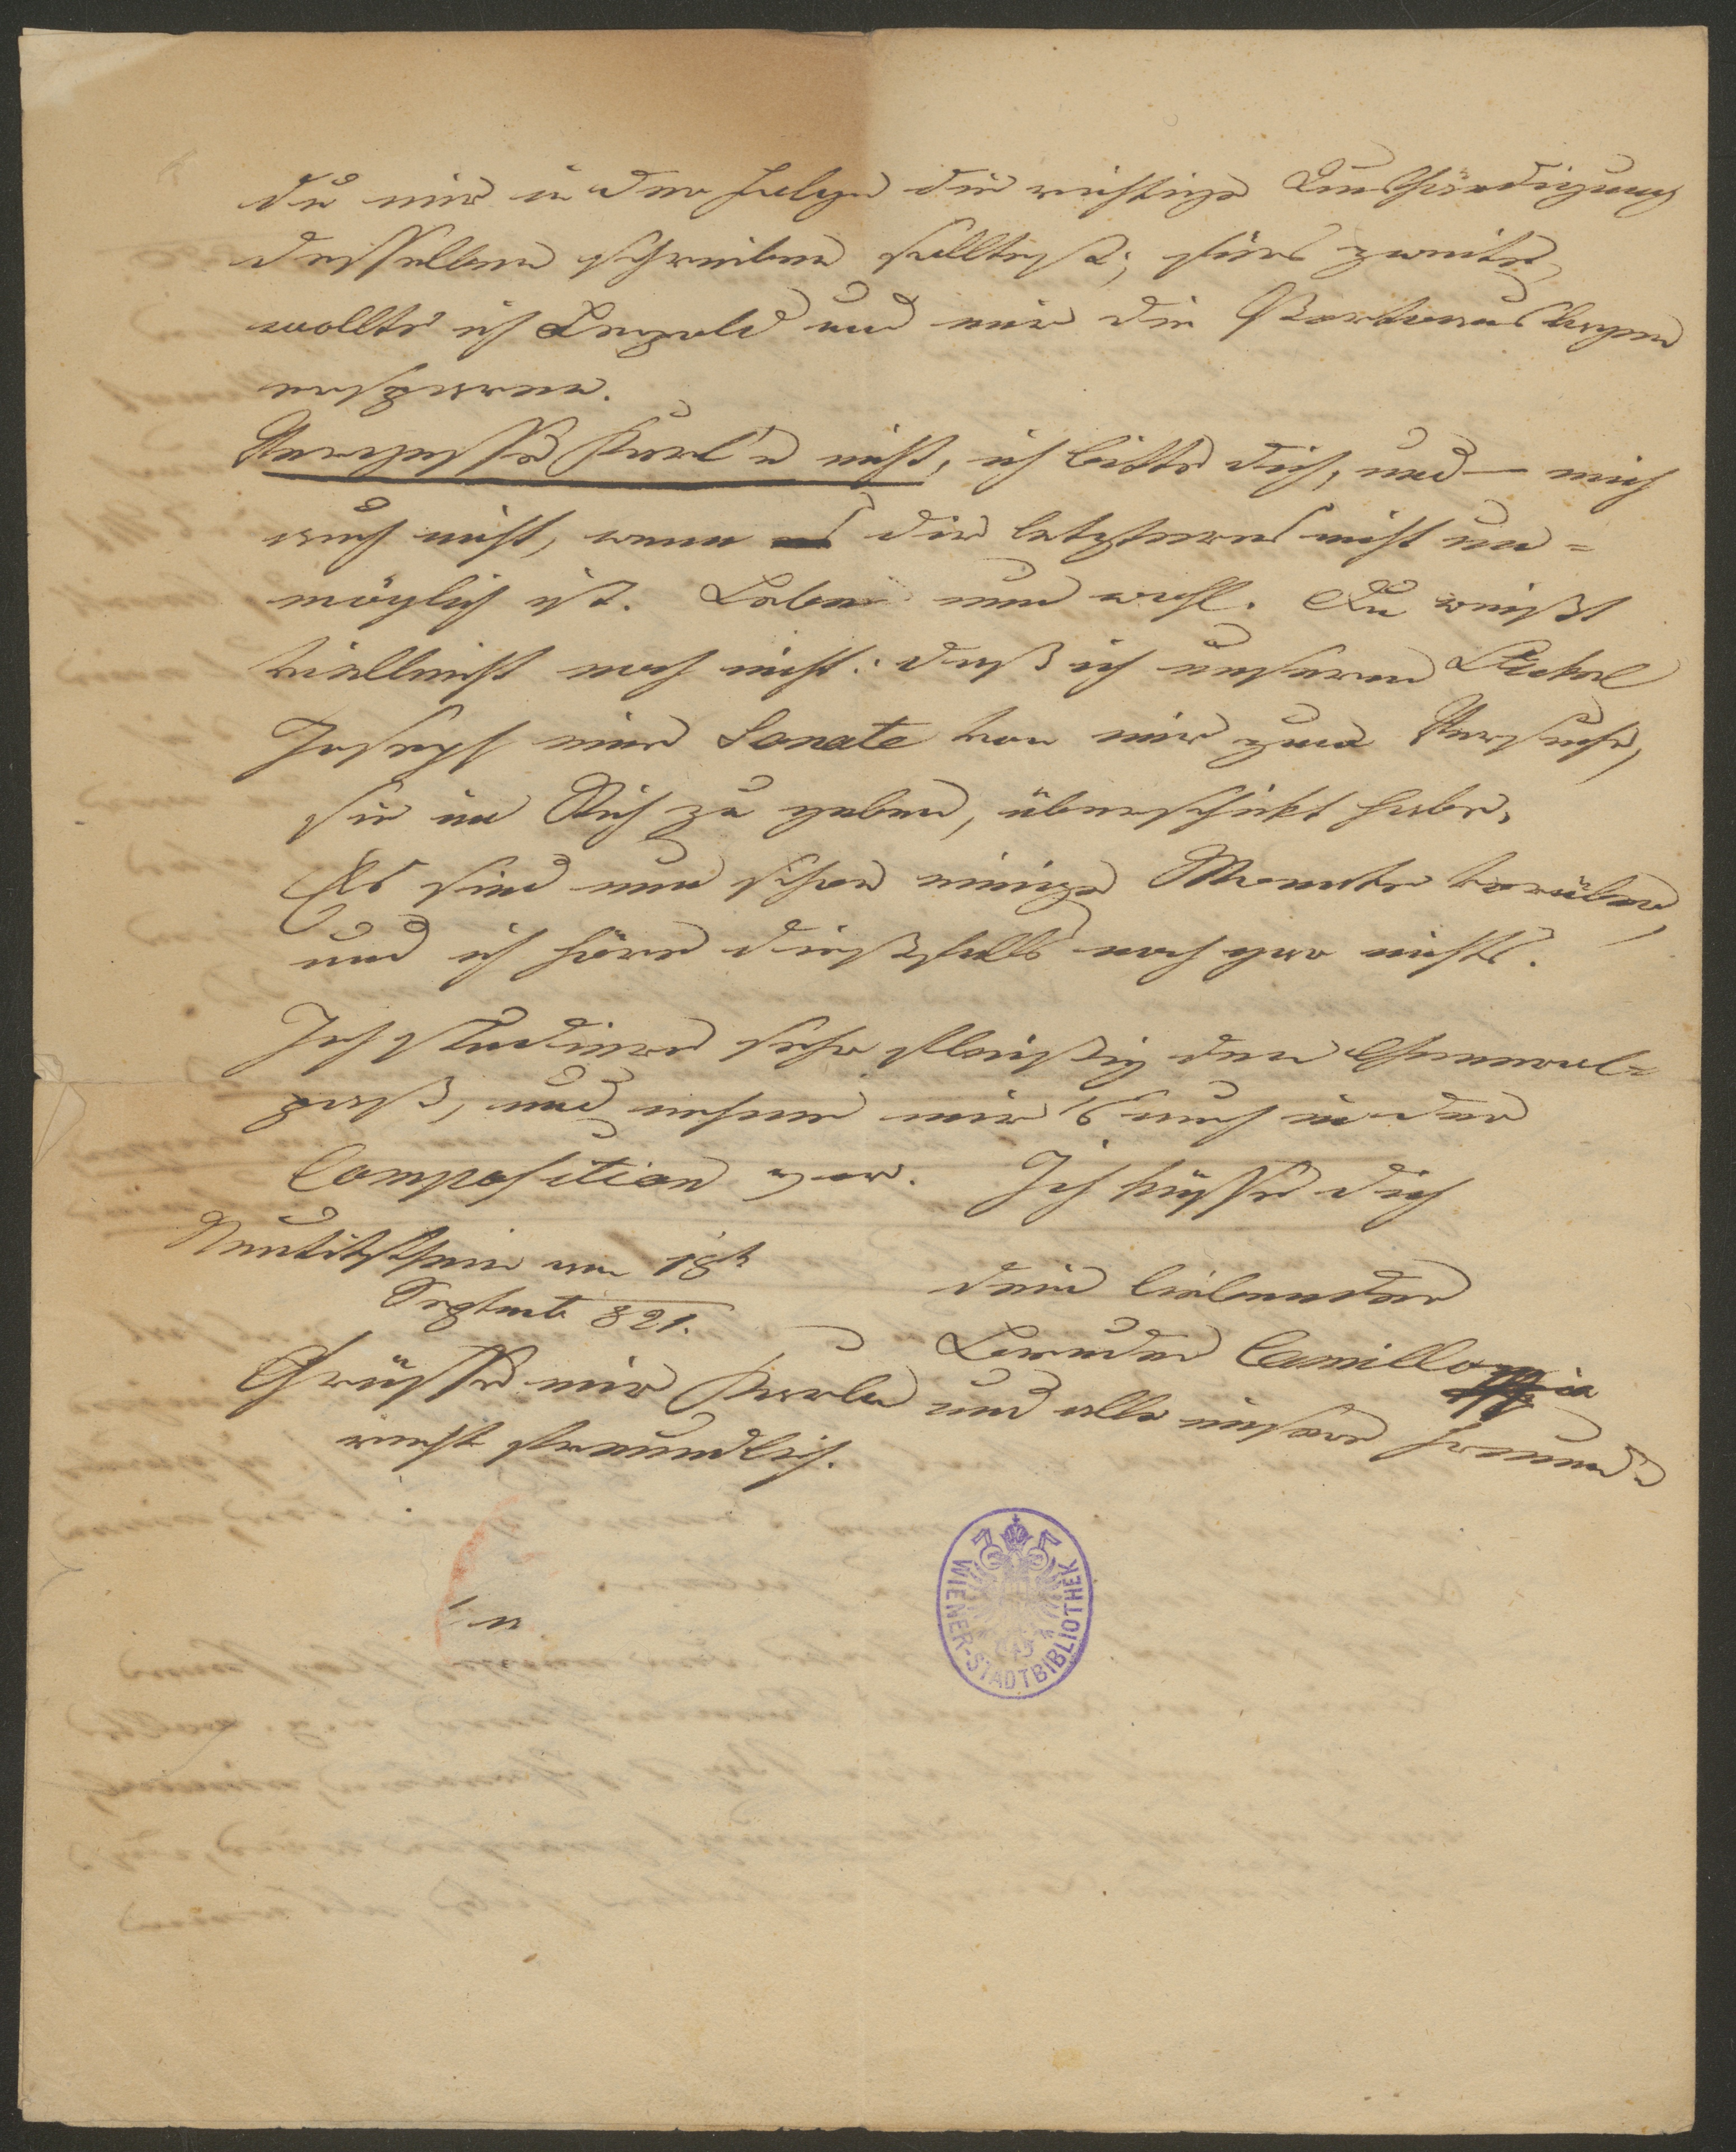 du mir in der Folge die richtige Aushändigung
desselben schreiben solltest; fürs zweite,
wollte ich Leopold und mir die Portoauslagen
ersparen.
Vergesse Karl'n nicht, ich bitte dich, und – mich
auch nicht, wenn dir letzteres nicht un=
möglich ist. Lebe nun wohl. Du weißt
vielleicht noch nicht: daß ich unserem
Joseph eine Sonate von mir zum Versuche,
sie in Stich zu geben, überschickt habe.
Es sind nun schon einige Monate vorüber,
und ich höre dießfalls noch gar nichts.
Ich studiere sehr fleißig den General=
paß, und nehme mir's auch in der
Composition vor. Ich küsse dich
Neutitschein am 18t
Septemb 821.
dein liebender
Bruder Camillo
Grüsse mir Karln und alle unsere Freunde
recht freundlich.
WIENER-STADTBIBLIOTHEK